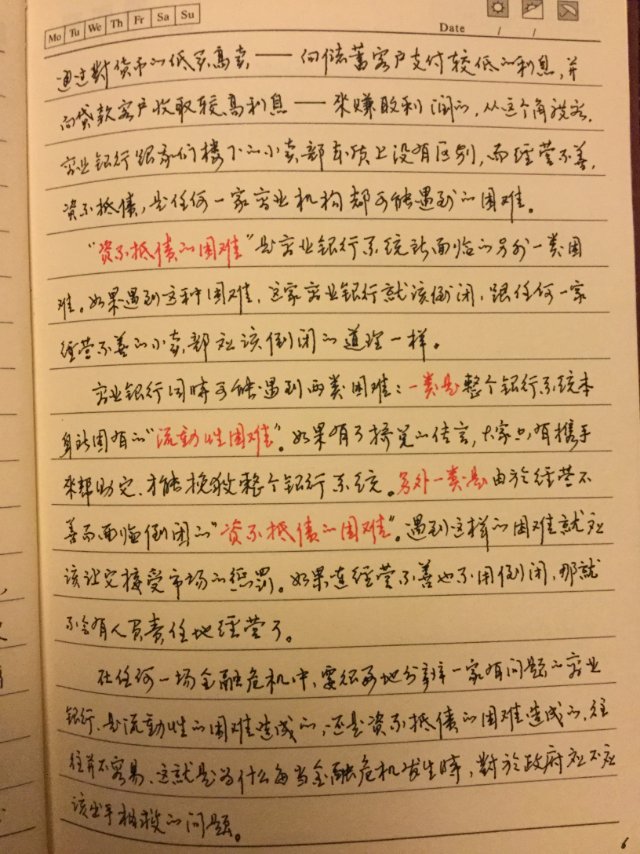 Mo Tu We Th Fr Sa Su
Date / /
通过對货币的低买高卖，——向储蓄客户支付较低的利息，并
向贷款客户收取较高利息——来赚取利润的，从这个角度看，
商业银行跟我们楼下的小卖部本质上没有区别，而经营不善，
资不抵债，是任何一家商业机构都可能遇到的困难。
“资不抵债的困难”是商业银行系统所面临的另外一类困
难。如果遇到这种困难，这家商业银行就该倒闭，跟任何一家
经营不善的小卖部应该倒闭的道理一样。
商业银行同時可能遇到两类困难：一类是整个银行系统本
身所固有的“流動性困难”。如果有了挤兑的传言，大家只有携手
来帮助它，才能挽救整个银行系统。另外一类是由於经营不
善而面临倒闭的“资不抵债的困难”。遇到这样的困难就应
该让它接受市场的惩罚。如果连经营不善也不用倒闭，那就
不会有人负责任地经营了。
在任何一场金融危机中，要很好地分辨一家有问题的商业
银行，是流動性的困难造成的，还是资不抵债的困难造成的，往
往并不容易，这就是为什么每当金融危机发生時，對於政府应不应
该出手相救的问题。
6